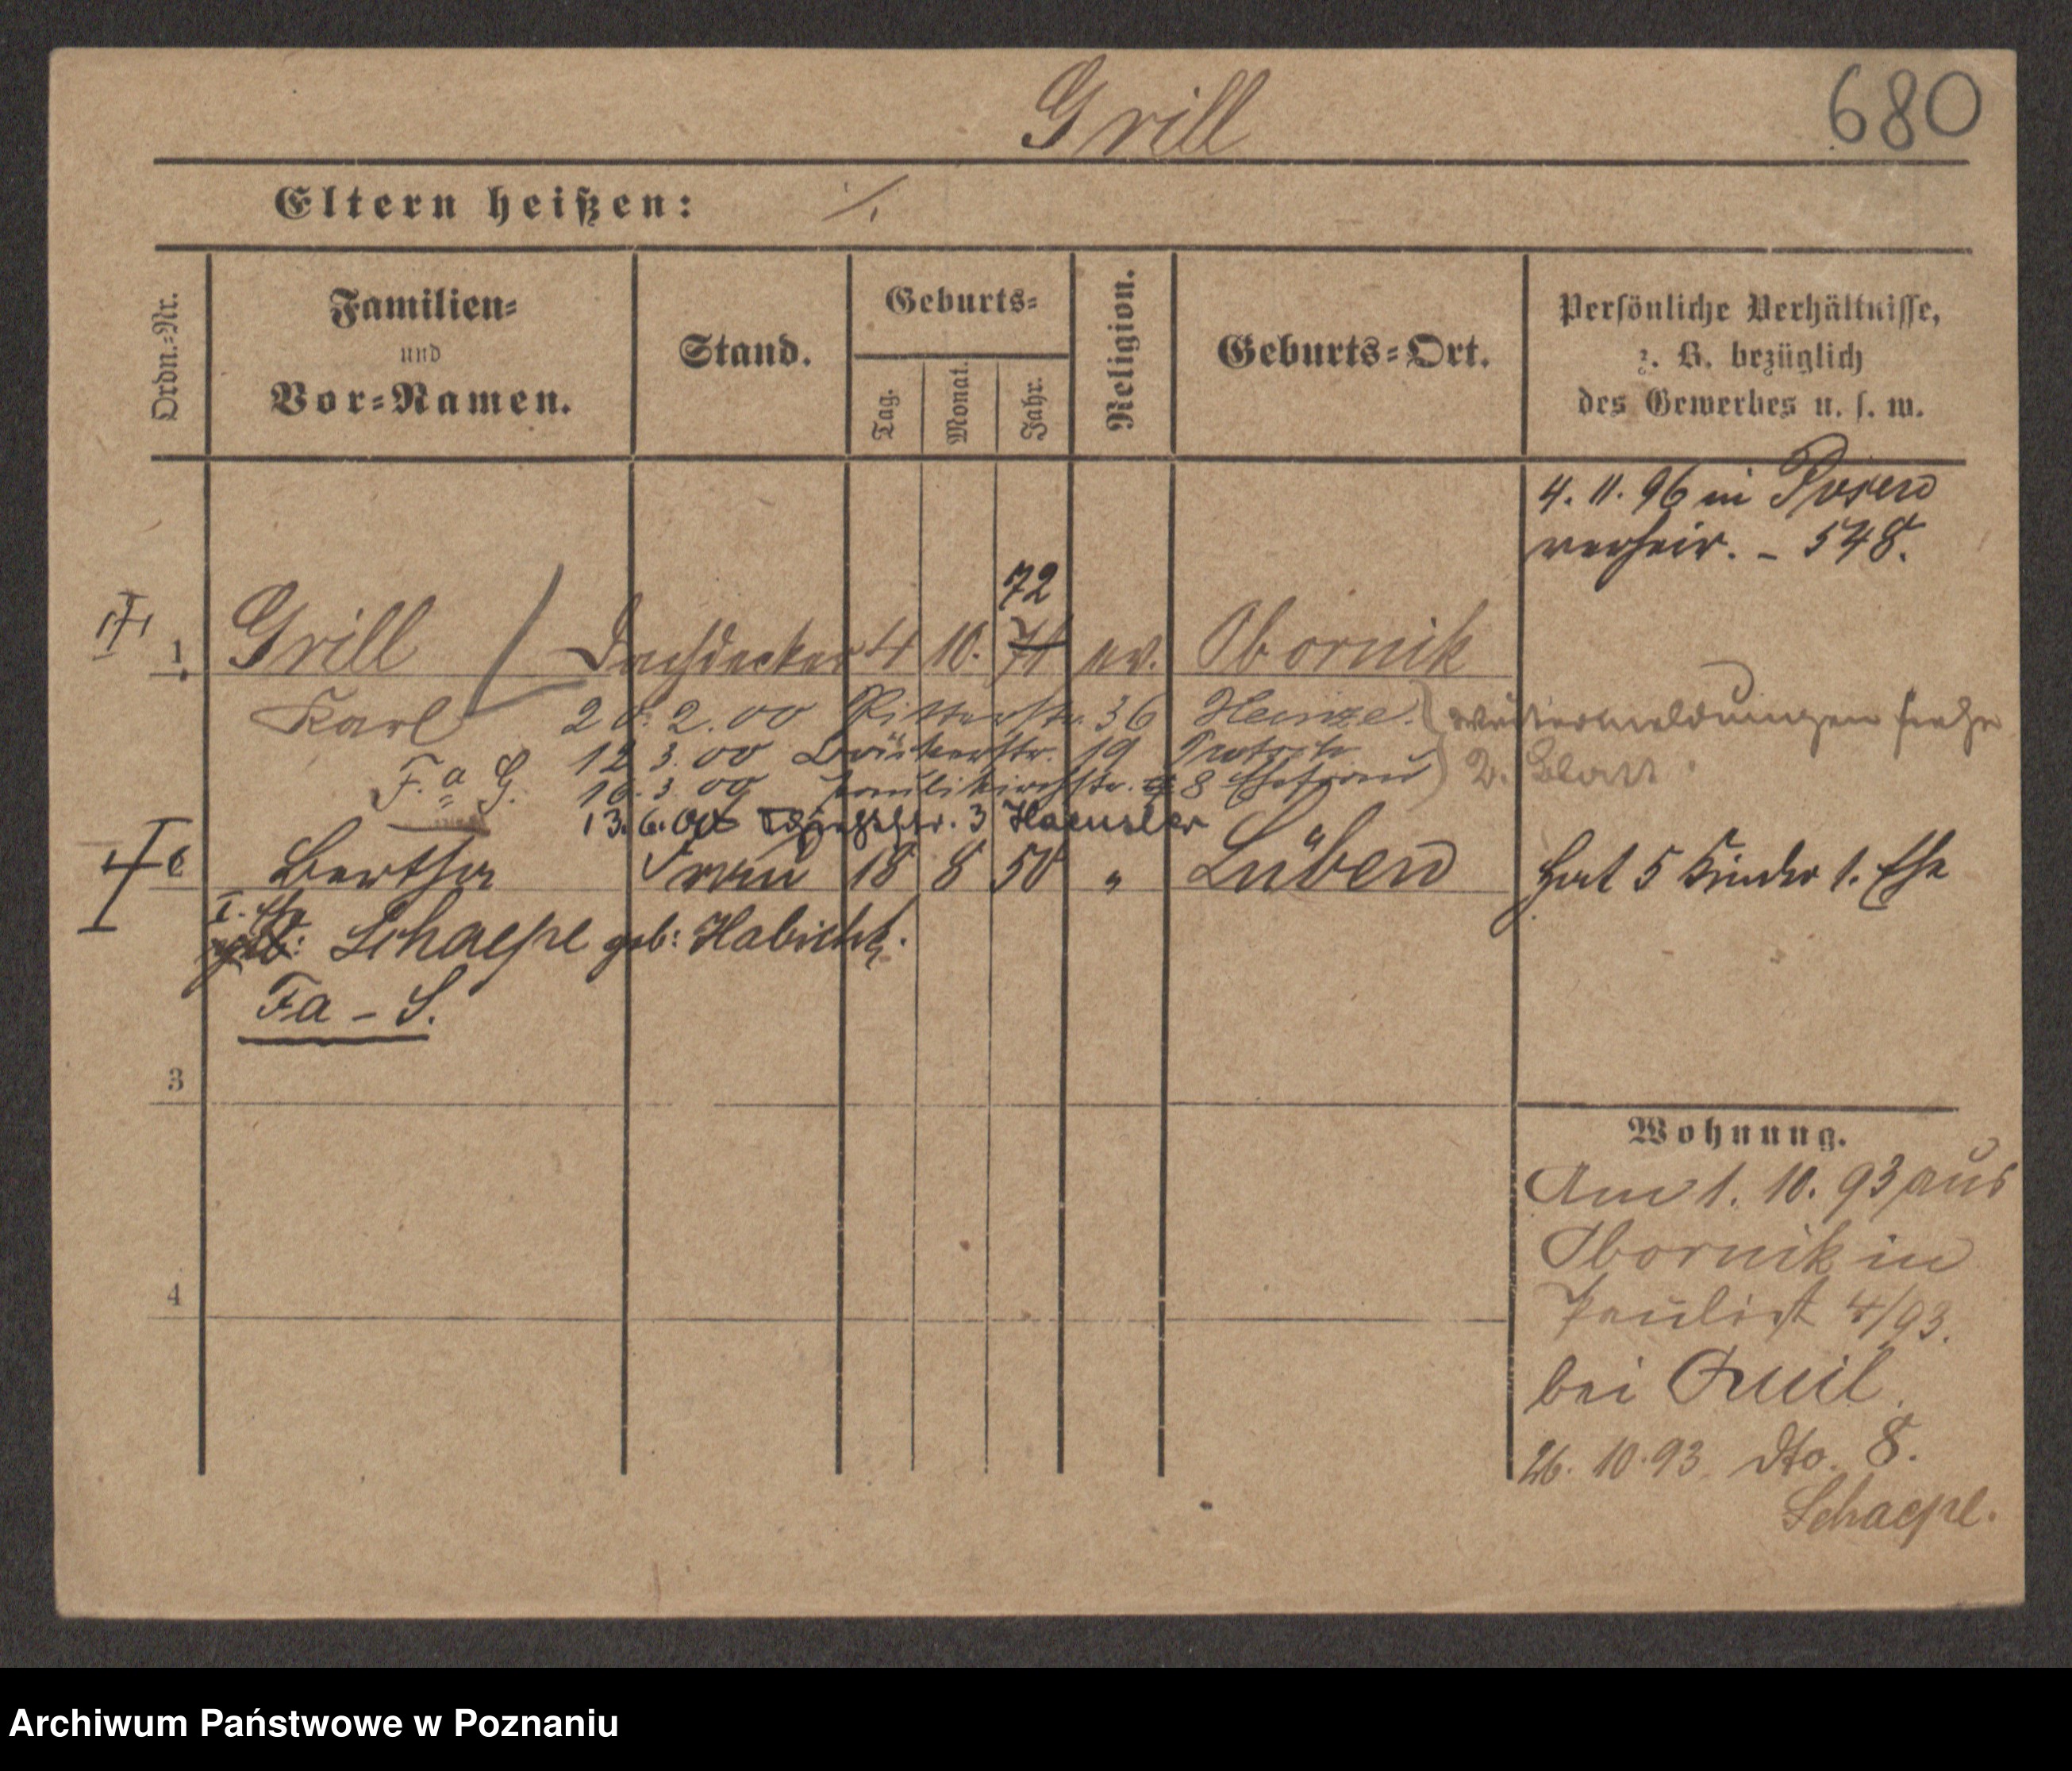 680
Grill
Eltern heißen: ./.
Ordn.=Nr.
Familien=
und
Vor=Namen.
Stand.
Geburts=
Tag.
Monat.
Jahr.
Religion.
Geburts=Ort.
Persönliche Verhältnisse,
z. B. bezüglich
des Gewerbes u. s. w.
4. 11. 96 in Posen
verheir. – 548.
72
1 Grill Dachdecker 4 10. 71 ev. Obornik
Karl 2 2. 00 Ritterstr. 36 Heinze. Weitermeldungen siehe
12 3. 00 Bäckerstr. 19
2. Blatt
F.a G. 3. 00 Paulikirchstr. 8 Ehefrau
13. 6. 00 3 Haensler
Bertha Frau 18 8 50 " Lüben hat 5 Kinder 1. Ehe
I. Ehe
geb: Schaepe geb: Habicht.
Fa – S.
3
Wohnung.
Am 1. 10. 93 aus
Obornik in
4
Paulist 4/93.
bei
26. 10. 93 dto. 8.
Schaepe.
Archiwum Państwowe w Poznaniu